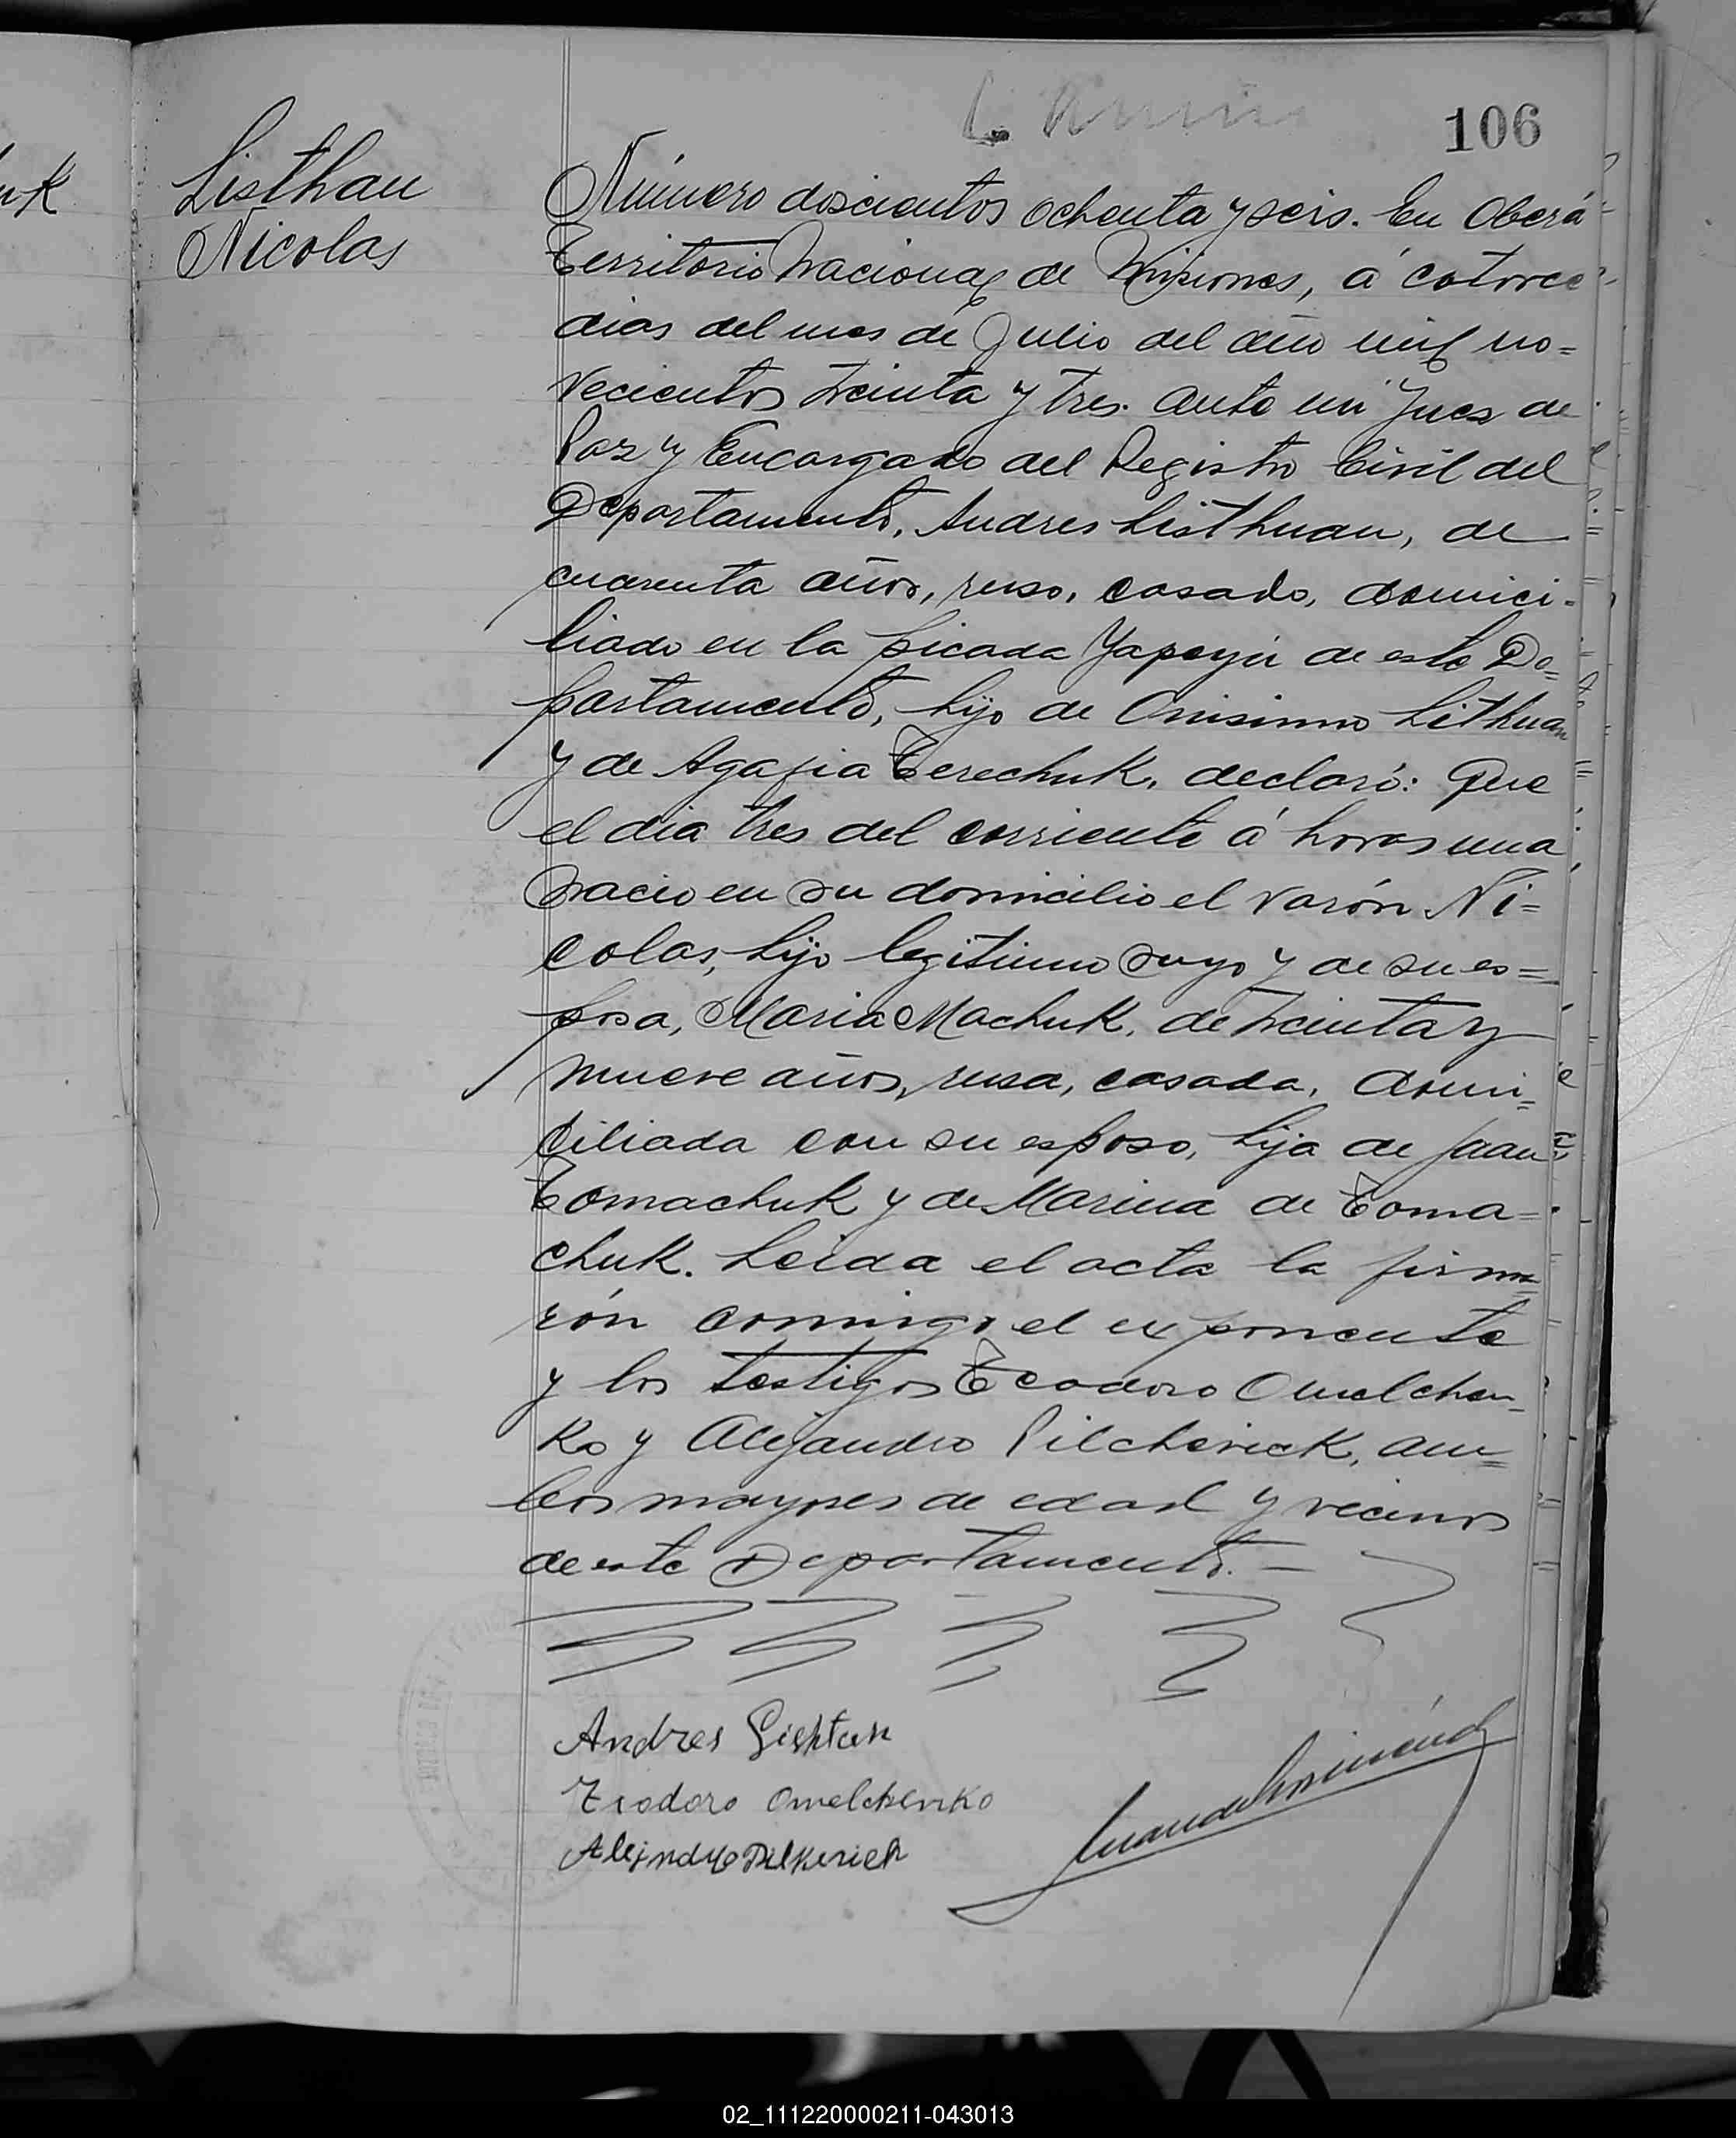 106
Listhan
Nicolas
Número doscientos ochenta y seis. En Oberá
Territorio Nacional de Misiones, á catorce
dias del mes de Julio del año mil no=
vecientos treinta y tres. Ante mi Juez de
Paz y Encargado del Registro Civil del
Departamento, Andres Listhuan, de
cuarenta años, ruso, casado, domici-
liado en la picada Yapeyú de este De=
partamento, hijo de Onisimo Lithuan
y de Agafia Terechuk, declaró: Que
el dia tres del corriente á horas una
nacio en su domicilio el varón Ni=
colas, hijo legitimo suyo y de su es=
posa, Maria Machuk, de treinta y
nueve años, rusa, casada, domi=
ciliada con su esposo, hija de Juan
Tomachuk y de Marina de Toma=
chuk. Leida el acta la firma
rón conmigo el exponente
y los testigos Teodoro Omelchen-
ko y Alejandro Pilchevick, am=
bos mayores de edad y vecinos
de este Departamento. =
Andres Lishtan
Teodoro Omelchenko
02_111220000211-043013